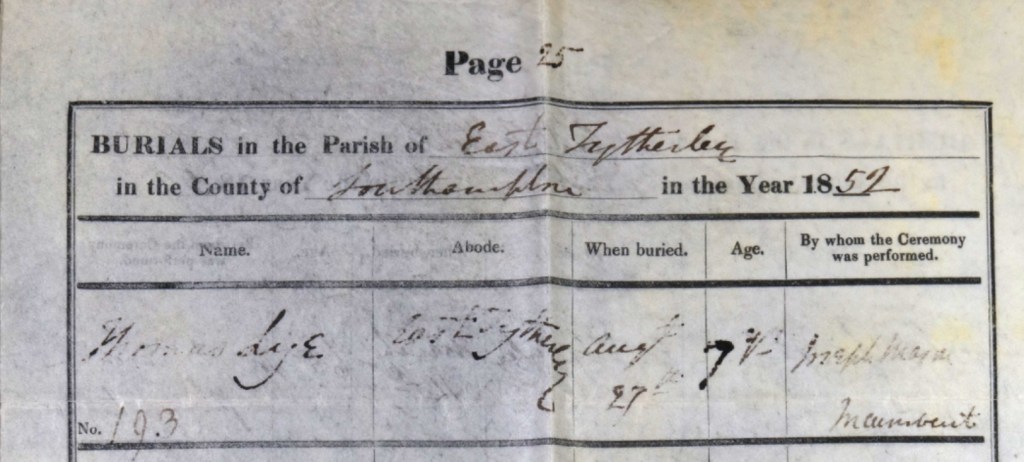 Page 25
BURIALS in the Parish of East Tytherley
in the County of Southampton in the Year 1859
Name. Abode. When buried. Age. By whom the Ceremony was performed.
Thomas Lye East Tytherley Augt 27th 7 Joseph
Incumbent
No. 193